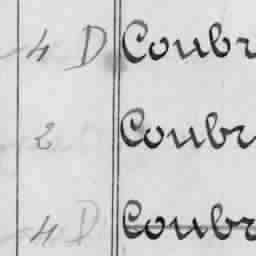 4 D Coubr
2 Coubr
4 D Coubr